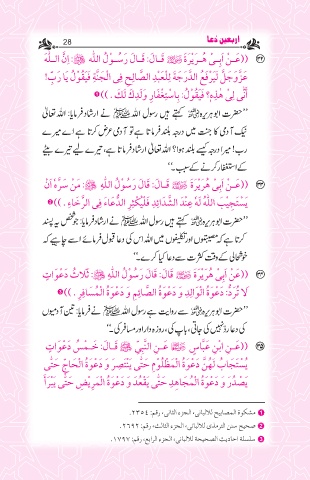 28
اربعین دُعا
㉒ ((عَنْ أَبِیْ هُرَیْرَةَ ؓ قَالَ: قَالَ رَسُوْلُ اللّٰهِ ﷺ: إِنَّ اللّٰهَ
عَزَّوَجَلَّ لَیَرْفَعُ الدَّرَجَةَ لِلْعَبْدِ الصَّالِحِ فِی الْجَنَّةِ فَیَقُوْلُ یَا رَبِّ!
أَنّٰی لِیْ هٰذِهٖ؟ فَیَقُوْلُ: بِاسْتِغْفَارِ وَلَدِكَ لَكَ . )) ❶
’’حضرت ابو ہریرہ ؓ کہتے ہیں رسول اللہ ﷺ نے ارشاد فرمایا: اللہ تعالیٰ
نیک آدمی کا جنت میں درجہ بلند فرماتا ہے تو آدمی عرض کرتا ہے اے میرے
رب! میرا درجہ کیسے بلند ہوا؟ اللہ تعالیٰ ارشاد فرماتا ہے، تیرے لیے تیرے بیٹے
کے استغفار کرنے کے سبب۔‘‘
㉓ ((عَنْ أَبِیْ هُرَیْرَةَ ؓ قَالَ: قَالَ رَسُوْلُ اللّٰهِ ﷺ: مَنْ سَرَّهُ أَنْ
یَسْتَجِیْبَ اللّٰهُ لَهُ عِنْدَ الشَّدَائِدِ فَلْیُكْثِرِ الدُّعَاءَ فِی الرَّخَاءِ . )) ❷
’’حضرت ابو ہریرہ ؓ کہتے ہیں رسول اللہ ﷺ نے ارشاد فرمایا: جو شخص یہ پسند
کرتا ہے کہ مصیبتوں اور تکلیفوں میں اللہ اس کی دعا قبول فرمائے اسے چاہیے کہ
خوشحالی کے وقت کثرت سے دعا کیا کرے۔‘‘
㉔ ((عَنْ أَبِیْ هُرَیْرَةَ ؓ قَالَ: قَالَ رَسُوْلُ اللّٰهِ ﷺ: ثَلَاثُ دَعَوَاتٍ
لَا تُرَدُّ: دَعْوَةُ الْوَالِدِ وَ دَعْوَةُ الصَّائِمِ وَ دَعْوَةُ الْمُسَافِرِ . )) ❸
’’حضرت ابو ہریرہ ؓ سے روایت ہے رسول اللہ ﷺ نے فرمایا: تین آدمیوں
کی دعا رد نہیں کی جاتی، باپ کی، روزہ دار اور مسافر کی۔‘‘
㉕ ((عَنِ ابْنِ عَبَّاسٍ ؓ عَنِ النَّبِیِّ ﷺ قَالَ: خَمْسُ دَعَوَاتٍ
یُسْتَجَابُ لَهُنَّ دَعْوَةُ الْمَظْلُوْمِ حَتّٰی یَنْتَصِرَ وَ دَعْوَةُ الْحَاجِّ حَتّٰی
یَصْدُرَ وَ دَعْوَةُ الْمُجَاهِدِ حَتّٰی یَقْعُدَ وَ دَعْوَةُ الْمَرِیْضِ حَتّٰی یَبْرَأَ
❶ مشكوة المصابيح للالبانی، الجزء الثانی، رقم: ٢٣٥٤.
❷ صحیح سنن الترمذی للالبانی، الجزء الثالث، رقم: ٢٦٩٣.
❸ سلسلة احادیث الصحیحة للالبانی، الجزء الرابع، رقم: ١٧٩٧.